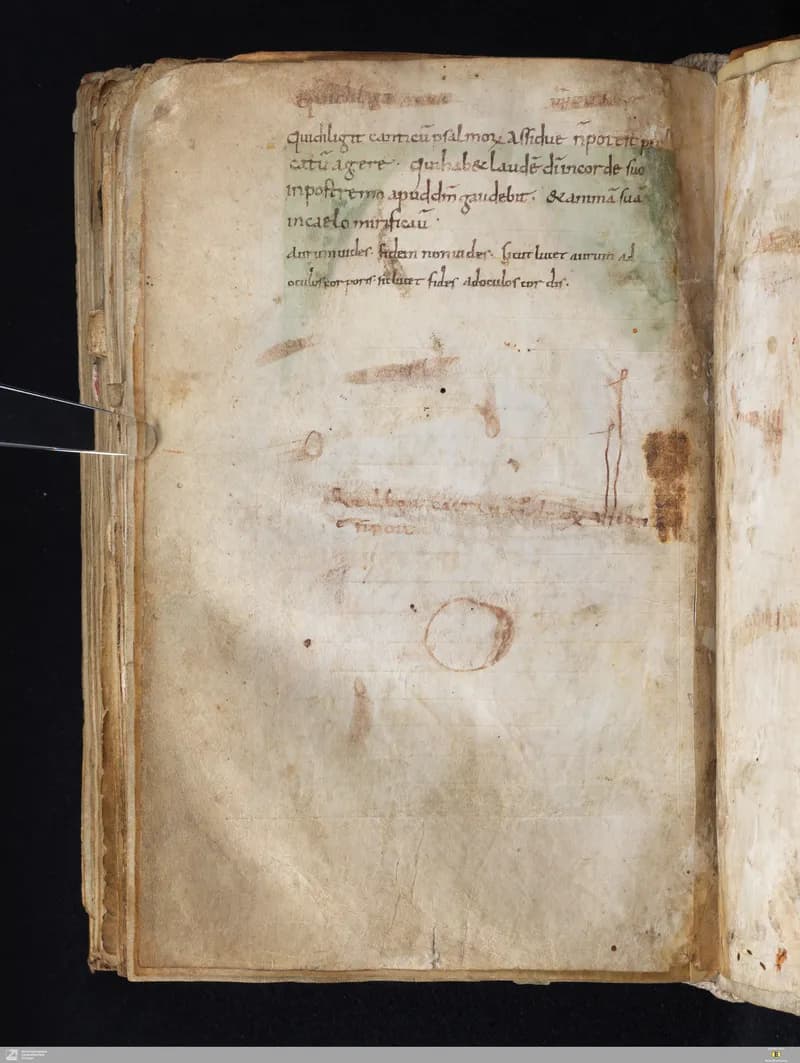 Quidiligit canticū psalmoꝝ Assidue n̄potest pec
catū agere · Quihab& laudē dī incorde suo
inpostremo apuddn̄m gaudebit · &animā suā
incaelo mirificaū ·
Aurum uides · fidem non uides · Sicut lucet aurum ad
oculos corporis · sic lucet fides adoculos cordis ·
n̄potest